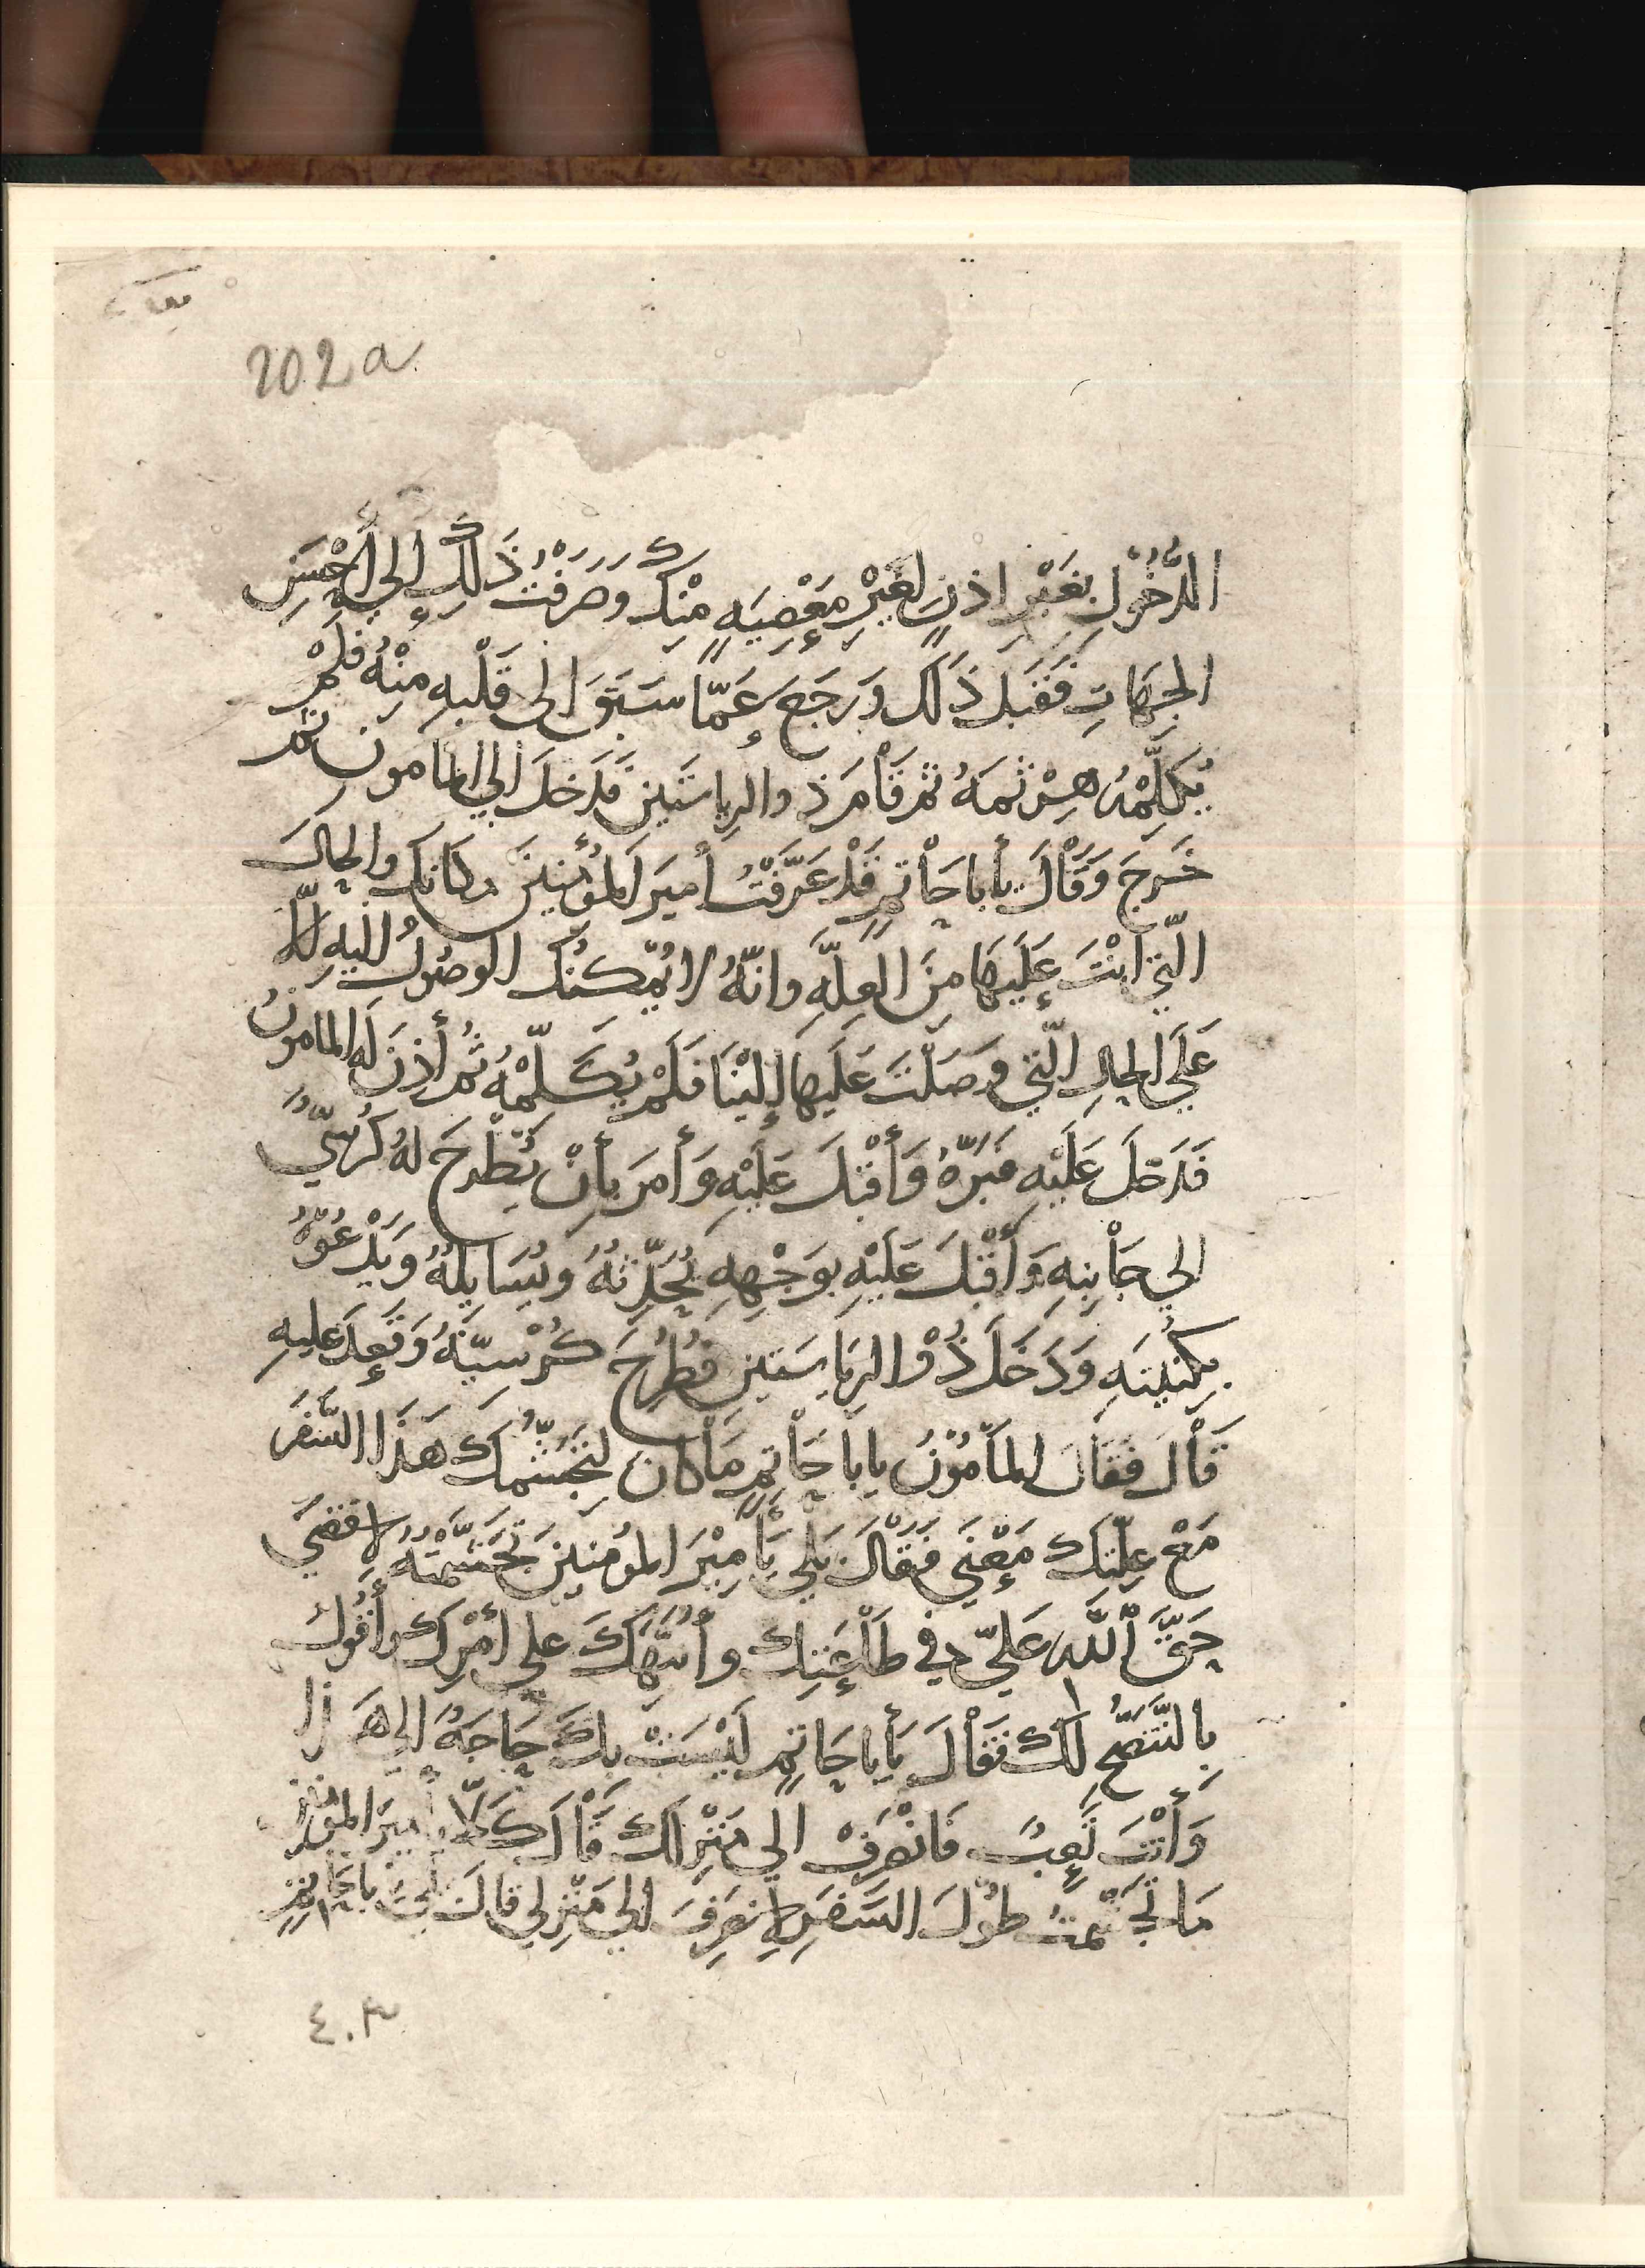 202a
الدُّخُوْلِ بِغَيْرِ اذنٍ لِغَيْرِ مَعْصِيَهٍ مِنْكَ وَصَرَفْتُ ذَلِكَ إِلى أَحْسَنِ
الجِهَاتِ فَقَبَلَ ذَلَكَ وَرَجَعَ عَمَّا سَبَقَ الى قَلْبِهِ مِنْهُ فلمْ
يُكَلِّمْهُ هِرْثَمَهُ ثم قَاْمَ ذوالرِياسَتَينِ فَدَخلَ الي المامونِ ثمَّ
خَرجَ وَقَاْلَ يأبا حَاْتمٍ قَدْ عَرَّفْتُ أَميرَ المؤْمنِينَ مكانكَ والحالَ
الّتي انْتَ عَلَيهَا مِنَ العِلَّهِ وَانّهُ لا يُمْكنُك الوصُولُ اليهِ إلّا
عَلَي الحالِ الّتي وَصَلتَ عَلَيهَا إِلَيْنَا فَلَمْ يُكَلِّمْهُ ثُم أَذِنَ لَه المامونُ
فَدَخلَ عَلَيْهِ فَبَرَّهُ وَأَقْبَلَ عَلَيْهِ وَأَمَرَ بأَنْ يُطْرحَ لهُ كُرْسِيٌّ
الي جَاْنبِهِ وَأَقْبَلَ عَلَيْهِ بوَجْهِهِ يُحَدِّثهُ وَيُسَايِلهُ وَيَدْعُوْهُ
بكنيتَهِ وَدَخَلَ ذُوْالرِيَاسَتينِ فَطُرِحَ كُرْسيّهُ وَقَعَدَ عليهِ
قَاْلَ فَقَالَ المأمُوْنُ يابَا حَاْتمٍ مَاْ كانَ لتَجَشّمكَ هَذَا السَّفرَ
مَعَ عِلّتكَ مَعْنَي فَقَالَ بَلي يَأَمِيْرَ المؤمنِينَ تجَشَّمْتهُ لاقضيَ
حَقَّ اللّهِ عَليَّ في طَاْعَتِكَ وأُنَبِّهَكَ علي أَمْرِكَ وأَقُوْلَ
بِالنُّصْحِ لكَ فقَاْلَ يَأَبا حَاتمٍ لَيْسَتْ بكَ حَاجَهُ الي هَذا
وَأَنْتَ تَعِبٌ فَانْصَرِفْ الي مَنْزِلكَ قَاْلَ كَلّا يَأَميرَ المؤمنين
مَا تَجشّمتُ طوُلَ السَّفرِ لانصَرِفَ الي مَنْزِلي قالَ بَلي يابا حَاتمٍ
٤٠٣